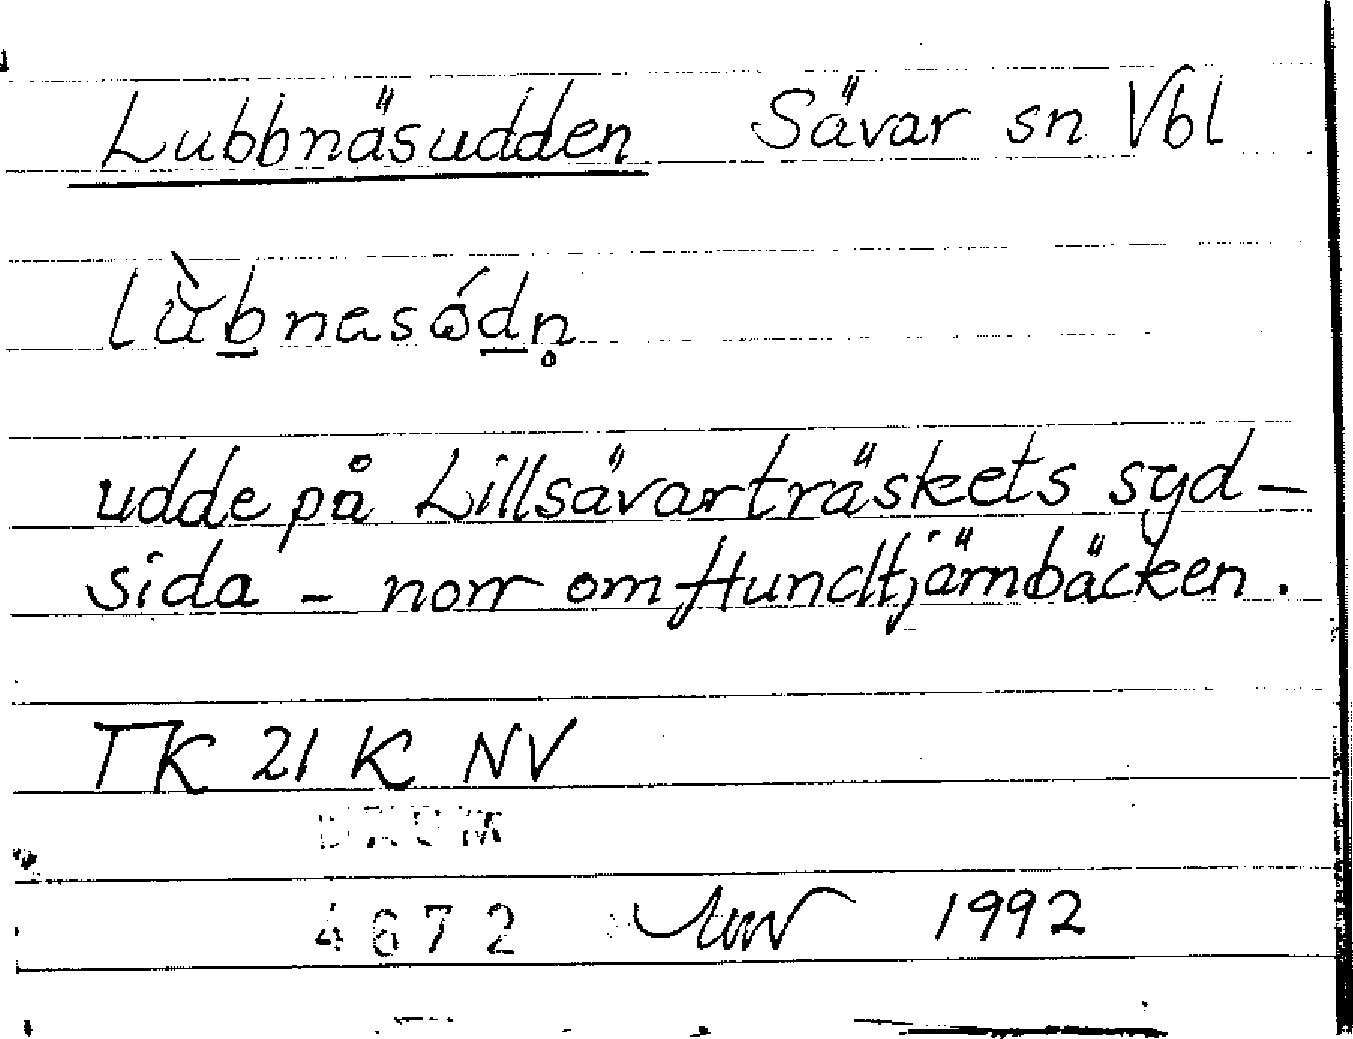 Lubbnäsudden Sävar sn Vbl
lùbnasódn̥
udde på Lillsävarträskets syd-
sida - norr om Hundtjärnbäcken.
TK 21 K NV
DAUM
4672 1992